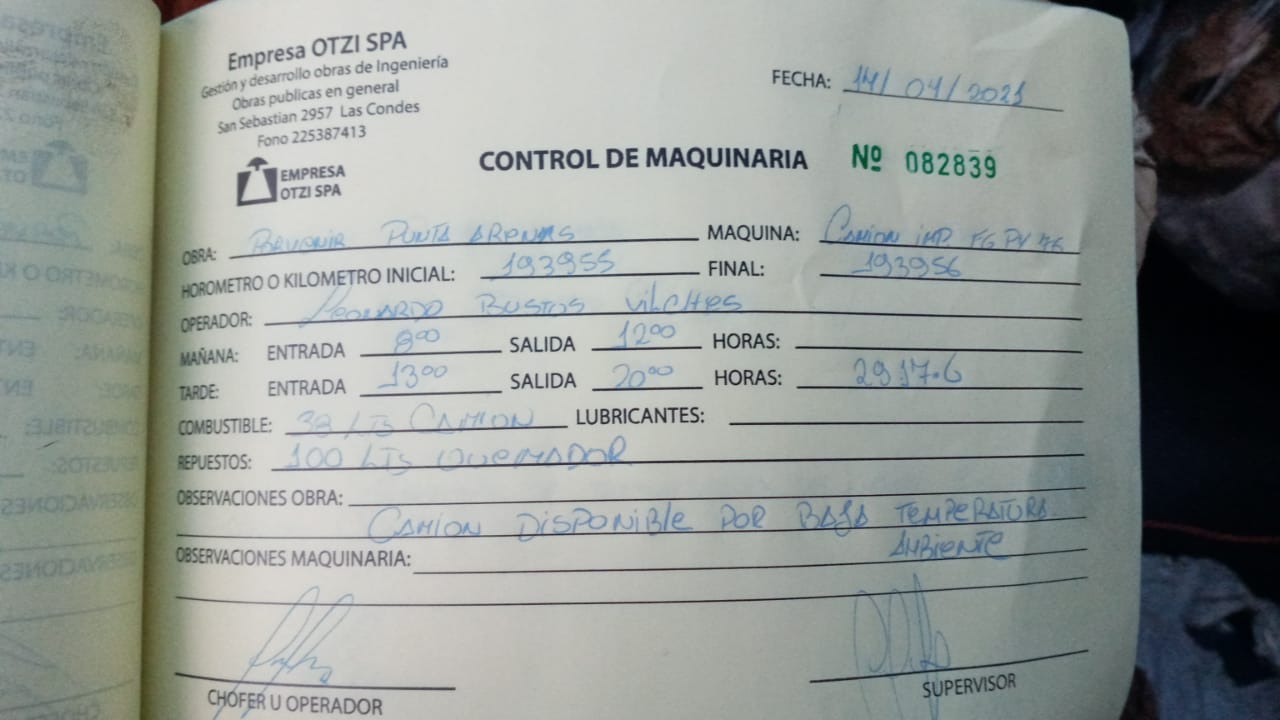 Empresa OTZI SPA
Gestión y desarrollo obras de Ingeniería
Obras publicas en general
San Sebastian 2957 Las Condes
Fono 225387413
EMPRESA
OTZI SPA
FECHA: 14/04/2021
CONTROL DE MAQUINARIA Nº 082839
OBRA: PUNTA ARENAS MAQUINA: CAMION IMP. FGPV 76
HOROMETRO O KILOMETRO INICIAL: 193955 FINAL: 193956
OPERADOR: LEONARDO BUSTOS VILCHES
MAÑANA: ENTRADA 8:00 SALIDA 12:00 HORAS:
TARDE: ENTRADA 13:00 SALIDA 20:00 HORAS: 2917.6
COMBUSTIBLE: 38 LTS CAMION LUBRICANTES:
REPUESTOS: 100 LTS QUEMADOR
OBSERVACIONES OBRA:
CAMION DISPONIBLE POR BAJA TEMPERATURA
AMBIENTE
OBSERVACIONES MAQUINARIA:
CHOFER U OPERADOR SUPERVISOR